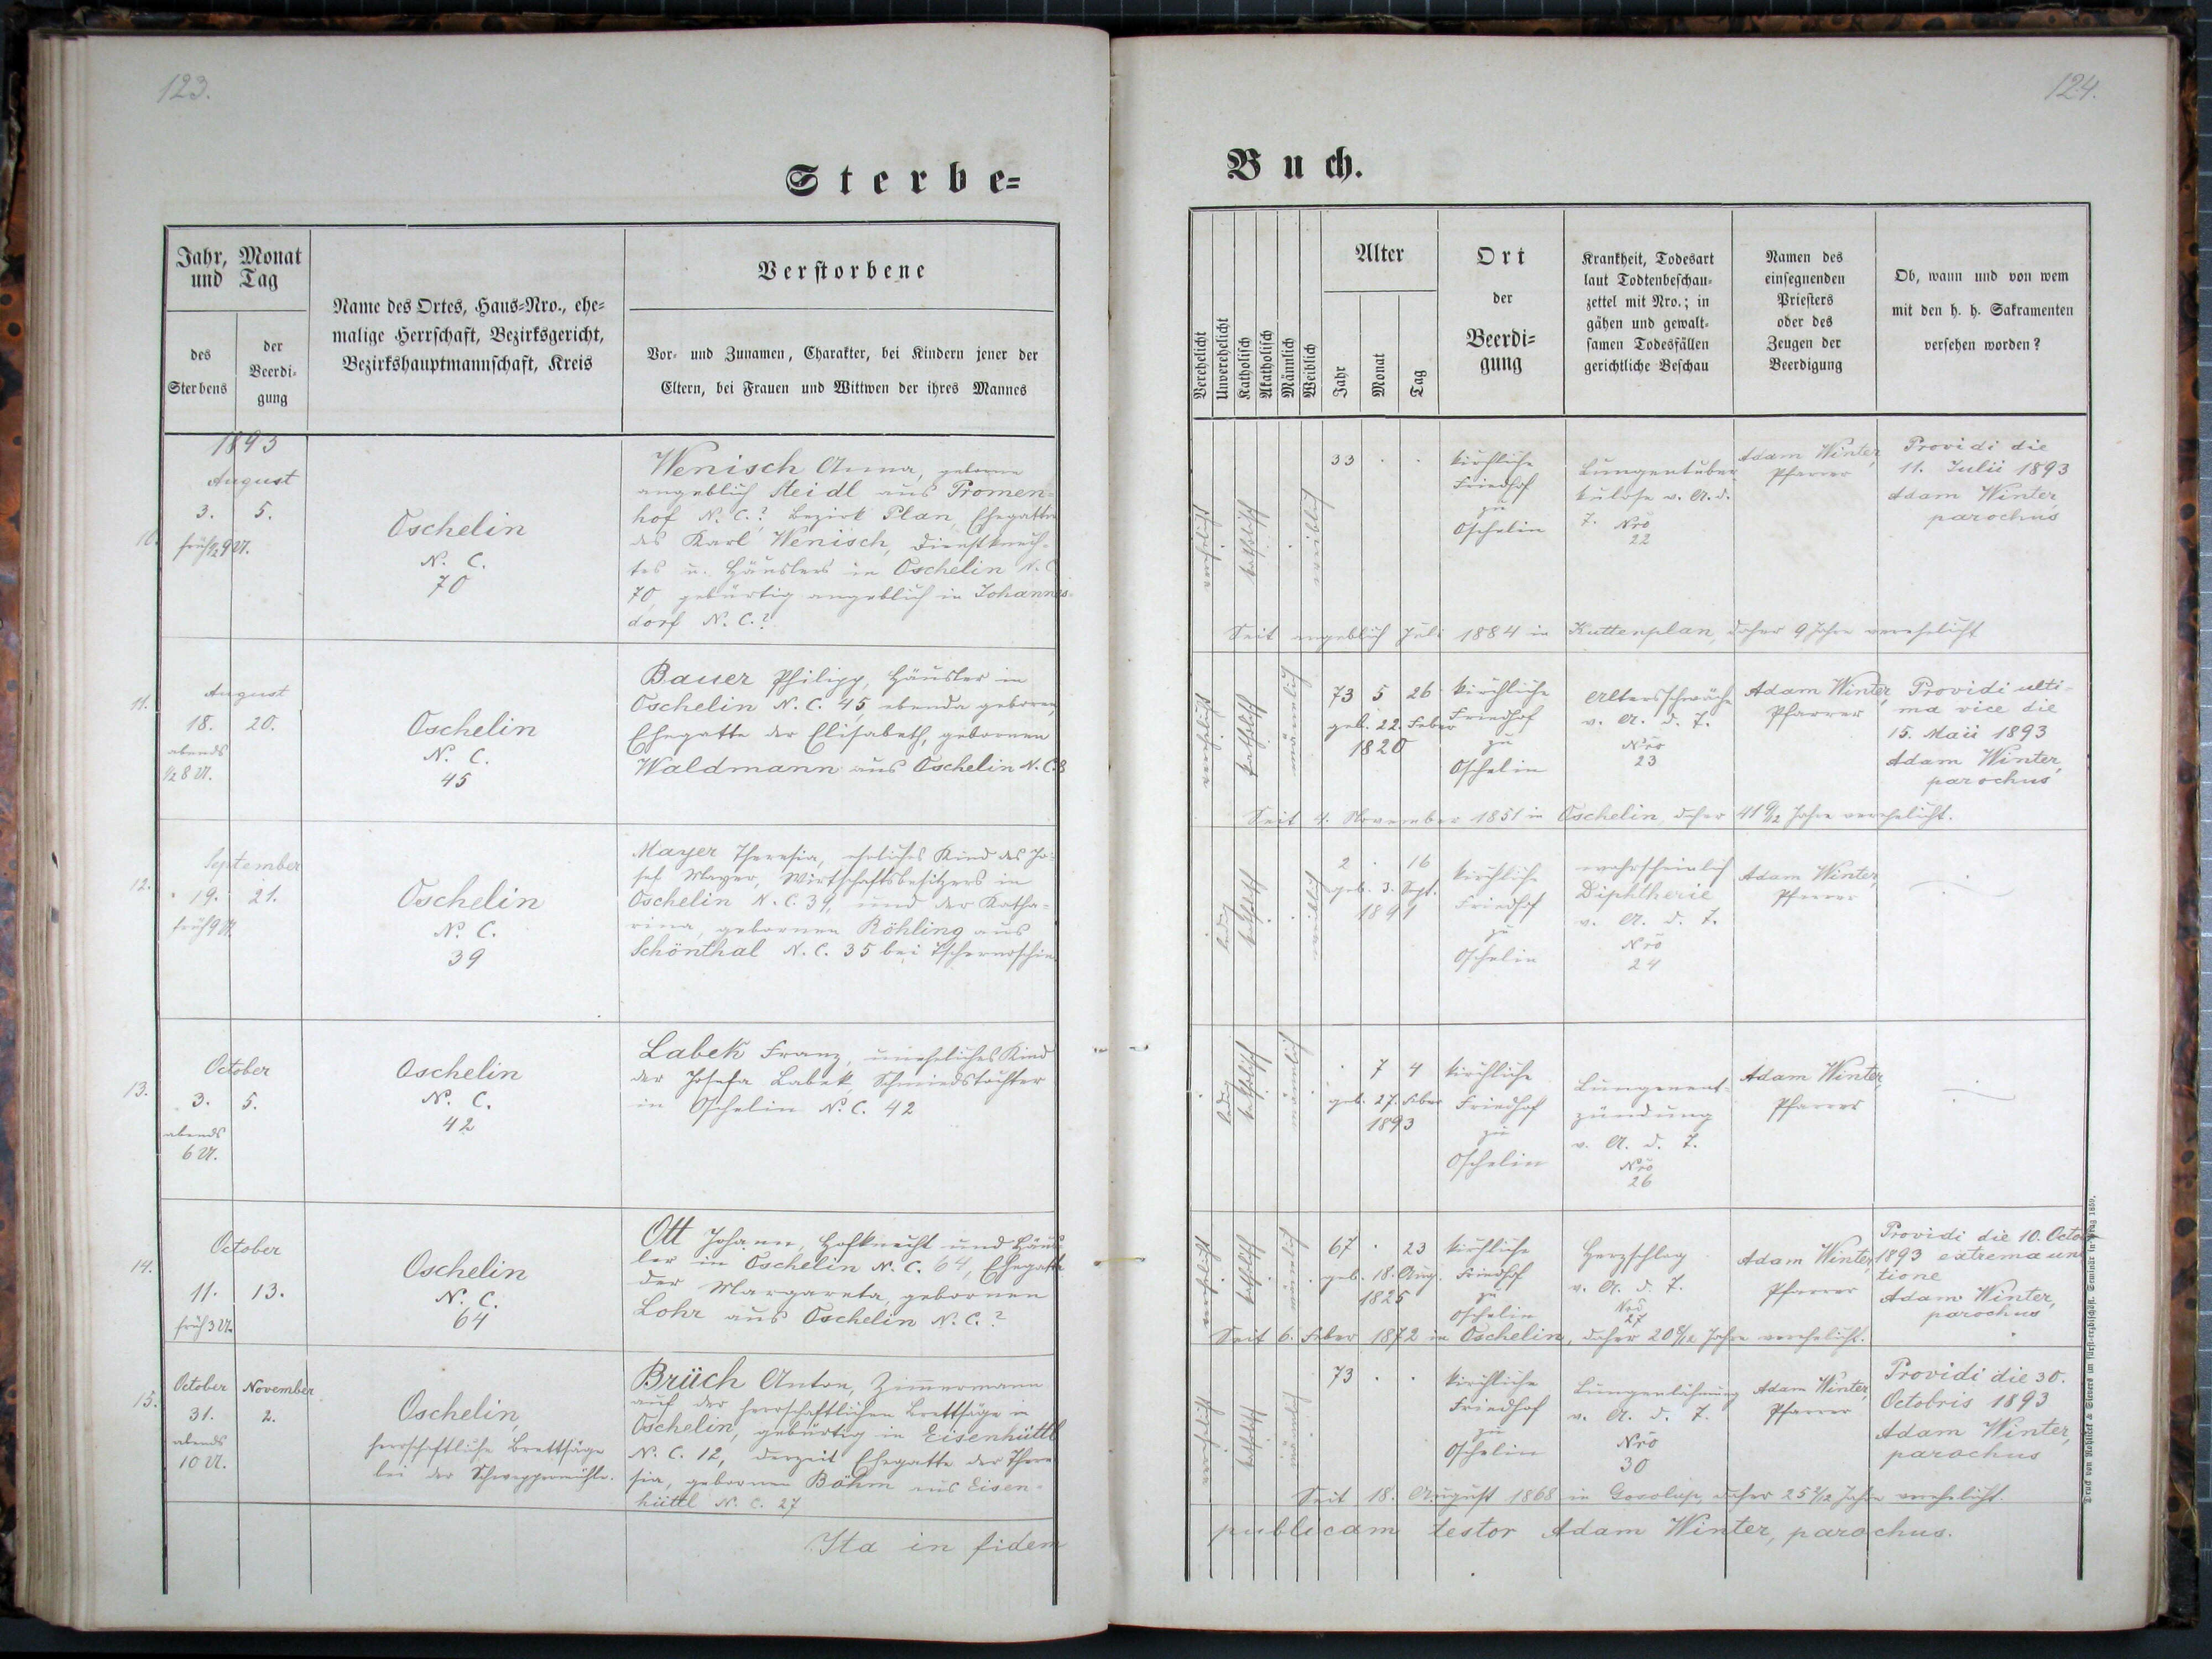 123.
Sterbe=
Jahr, Monat
und Tag
des
Sterbens
der
Beerdi-
gung
Name des Ortes, Haus-Nro., ehe-
malige Herrschaft, Bezirksgericht,
Bezirkshauptmannschaft, Kreis
Verstorbene
Vor- und Zunamen, Charakter, bei Kindern jener der
Eltern, bei Frauen und Wittwen der ihres Mannes
1893
10.
August
3. 5.
früh ½9 U.
Oschelin
N. C.
70
Wenisch Anna, geborne
angeblich Steidl aus Promen-
hof N. C.? Bezirk Plan, Ehegattin
des Karl Wenisch, Dienstknech-
tes u. Häuslers in Oschelin N. C.
70, gebürtig angeblich in Johannes-
dorf N. C.?
11.
August
18. 20.
abends
½8 U.
Oschelin
N. C.
45
Bauer Philipp, Häusler in
Oschelin N. C. 45, ebenda geboren,
Ehegatte der Elisabeth, gebornen
Waldmann aus Oschelin N. C. 8
12.
September
19. 21.
früh 9 U.
Oschelin
N. C.
39
Mayer Theresia, eheliches Kind des Jo-
sef Mayer, Wirtschaftsbesitzers in
Oschelin N. C. 39, und der Katha-
rina, gebornen Böhling aus
Schönthal N. C. 35 bei Tschernoschin.
13.
October
3. 5.
abends
6 U.
Oschelin
N. C.
42
Labek Franz, uneheliches Kind
der Josefa Labek, Schmiedstochter
in Oschelin N. C. 42
14.
October
11. 13.
früh 3 U.
Oschelin
N. C.
64
Ott Johann, Hofknecht und Häus-
ler in Oschelin N. C. 64, Ehegatte
der Margareta, gebornen
Lohr aus Oschelin N. C.?
15.
October November
31. 2.
abends
10 U.
Oschelin,
herrschaftliche Brettsäge
bei der Schwaggermühle.
Brüch Anton, Zimmermann
auf der herrschaftlichen Brettsäge in
Oschelin, gebürtig in Eisenhüttl
N. C. 12, derzeit Ehegatte der There-
sia, gebornen Böhm aus Eisen-
hüttl N. C. 27
Ita in fidem
124.
Buch.
Verehelicht
Unverehelicht
Katholisch
Akatholisch
Männlich
Weiblich
Alter
Jahr
Monat
Tag
Ort
der
Beerdi-
gung
Krankheit, Todesart
laut Todtenbeschau-
zettel mit Nro.; in
gähen und gewalt-
samen Todesfällen
gerichtliche Beschau
Namen des
einsegnenden
Priesters
oder des
Zeugen der
Beerdigung
Ob, wann und von wem
mit den h. h. Sakramenten
versehen worden?
verehelicht
katholisch
weiblich
33 . .
kirchliche
Friedhof
zu
Oschelin
Lungentuber
kulose v. A. d.
T. Nro
22
Adam Winter,
Pfarrer
Providi die
11. Julii 1893
Adam Winter,
parochus
Seit angeblich Juli 1884 in Kuttenplan, daher 9 Jahre verehelicht
verehelicht
katholisch
männlich
73 5 26
geb. 22. Feber
1820
kirchliche
Friedhof
zu
Oschelin
Altersschwäche
v. A. d. T.
Nro
23
Adam Winter,
Pfarrer
Providi ulti-
ma vice die
15. Maii 1893
Adam Winter,
parochus
Seit 4. November 1851 in Oschelin, daher 41 9/12 Jahre verehelicht.
ledig
katholisch
weiblich
2 . 16
geb. 3. Sept.
1891
kirchliche
Friedhof
zu
Oschelin
wahrscheinlich
Diphtherie
v. A. d. T.
Nro
24
Adam Winter,
Pfarrer
ledig
katholisch
männlich
. 7 4
geb. 27. Feber
1893
kirchliche
Friedhof
zu
Oschelin
Lungenent-
zündung
v. A. d. T.
Nro
26
Adam Winter,
Pfarrer
verehelicht
katholisch
männlich
67 . 23
geb. 18. Aug.
1825
kirchliche
Friedhof
zu
Oschelin
Herzschlag
v. A. d. T.
Nro
27
Adam Winter,
Pfarrer
Providi die 10. Octob
1893 extrema unc
tione
Adam Winter,
parochus
Seit 6. Feber 1872 in Oschelin, daher 20 8/12 Jahre verehelicht.
verehelicht
katholisch
männlich
73 . .
kirchliche
Friedhof
zu
Oschelin
Lungenlähmung
v. A. d. T.
Nro
30
Adam Winter,
Pfarrer
Providi die 30.
Octobris 1893
Adam Winter,
parochus
Seit 18. August 1868 in Gosolup, daher 25 2/12 Jahre verehelicht.
publicam testor Adam Winter, parochus.
Druck von Rohlicek & Sievers im fürst-erzbischöfl. Seminär in Prag 1859.